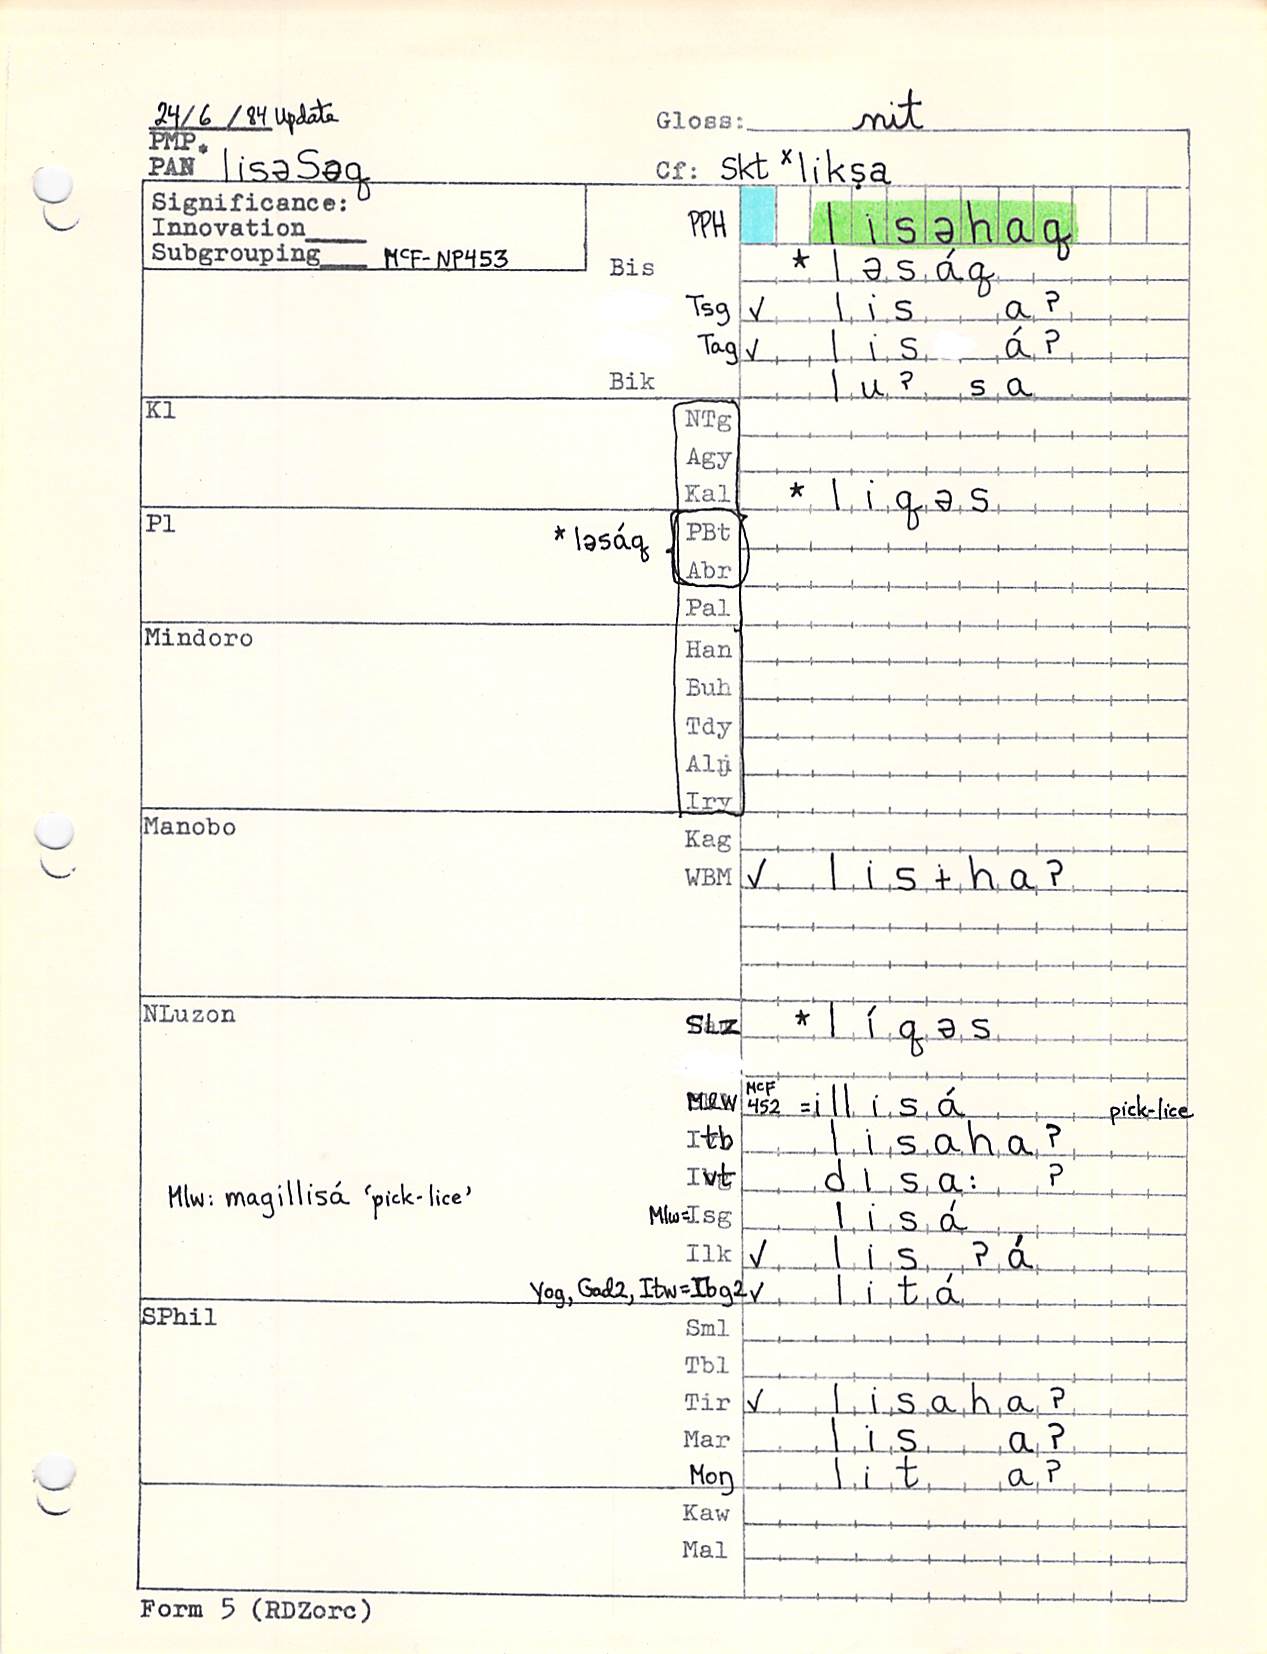 24/6 /84 Update
Gloss: nit
PMP.
PAN lisəSəq
Cf: Skt ˣlikṣa
Significance:
Innovation____
Subgrouping____ McF-NP453
PPH lisəhaq
Bis * ləsáq
Tsg ✓ lis aʔ
Tag ✓ lis áʔ
Bik luʔ sa
Kl
NTg
Agy
Kal * liqəs
Pl
*ləsáq PBt
Abr
Pal
Mindoro
Han
Buh
Tdy
Alŋ
Iry
Manobo
Kag
WBM ✓ lisɨhaʔ
NLuzon
SLz * líqəs
Mlw McF 452 = illisá pick-lice
Itb lisahaʔ
Ivt disa: ʔ
Mlw: magillisá ‘pick-lice’
Mlw=Isg lisá
Ilk ✓ lis ʔá
Yog, Gad2, Itw=Ibg2 ✓ litá
SPhil
Sml
Tbl
Tir ✓ lisahaʔ
Mar lis aʔ
Moŋ lit aʔ
Kaw
Mal
Form 5 (RDZorc)